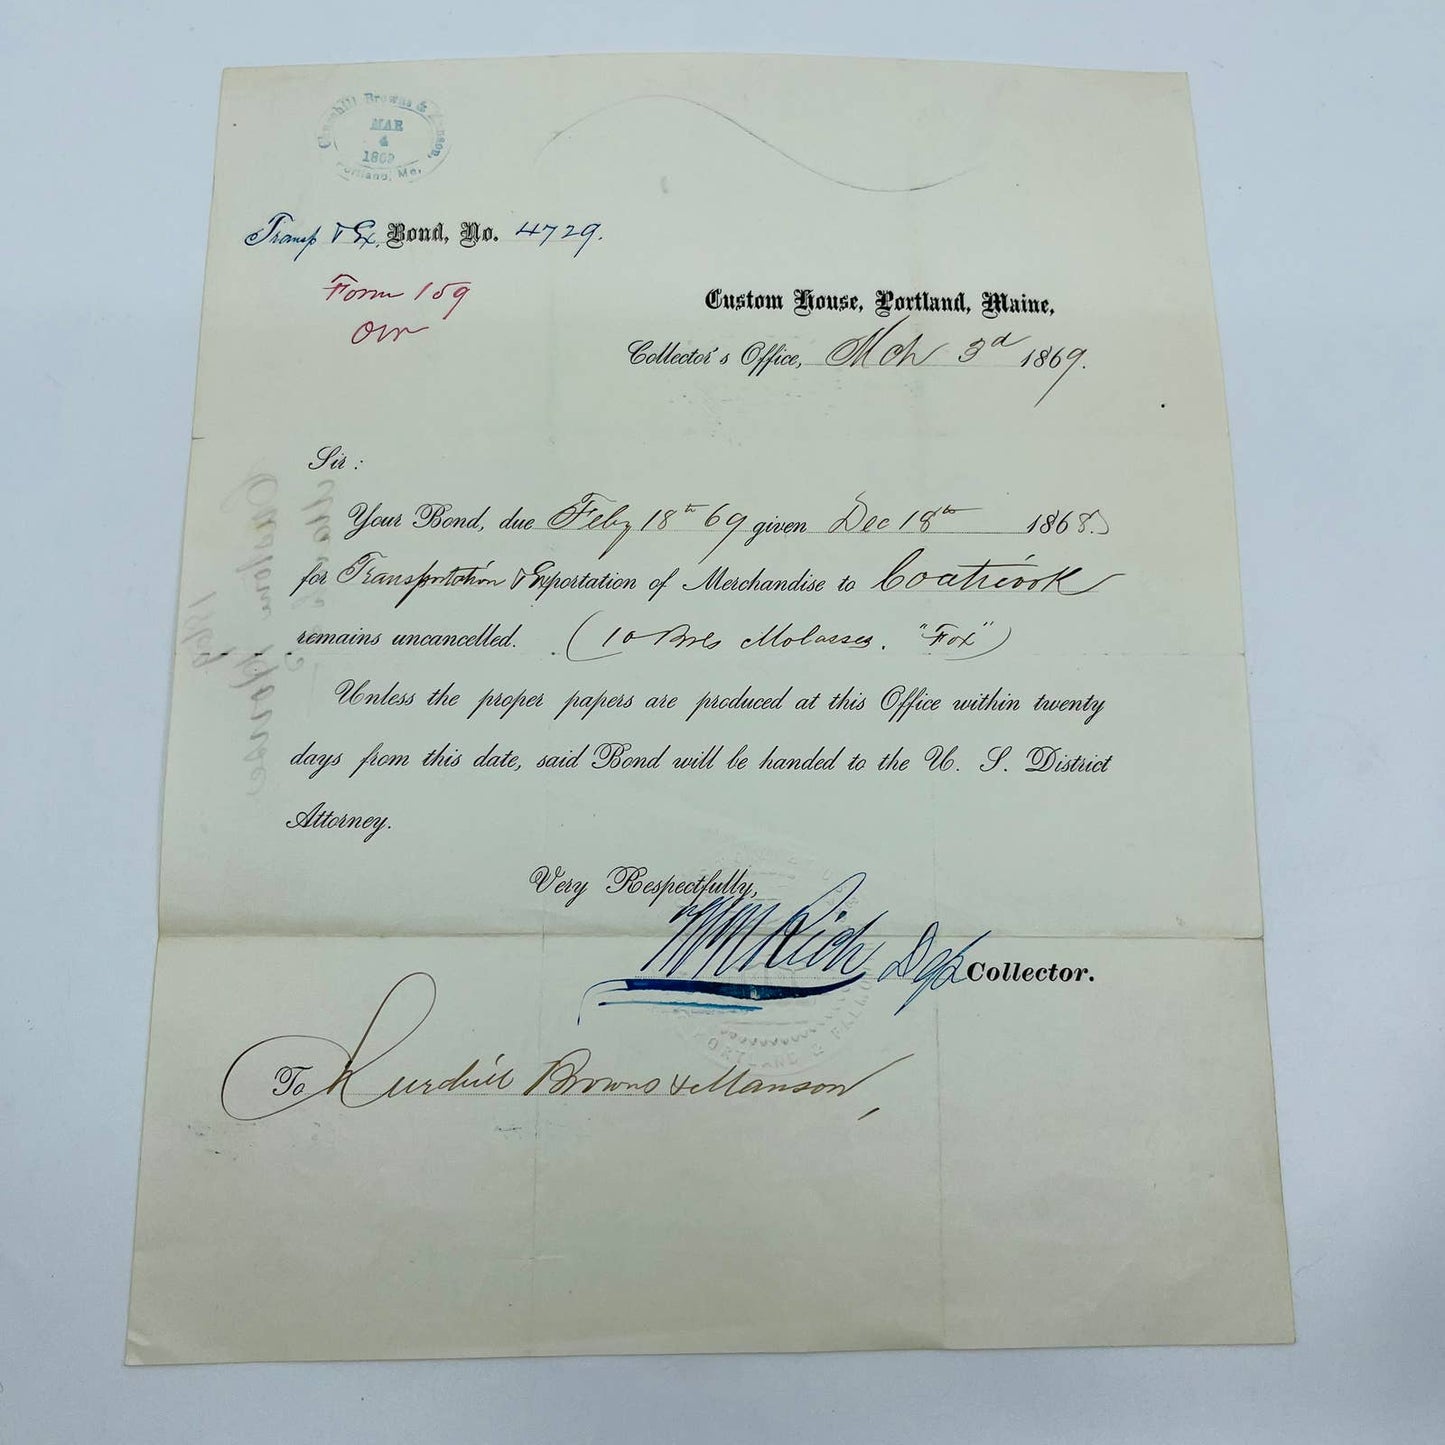 Churchill Browns & Manson,
MAR
4
1869
Portland, Me.
Transp & Ex, Bond, No. 4729.
Form 159
Custom House, Portland, Maine,
Collector's Office, Mch 3d 1869.
Sir:
Your Bond, due Feby 18th 69 given Dec 18th 1868.
for Transportation & Exportation of Merchandise to Coaticook
remains uncancelled. (10 Brls Molasses. "Fox")
Unless the proper papers are produced at this Office within twenty
days from this date, said Bond will be handed to the U. S. District
Attorney.
Very Respectfully,
Rich Dep Collector.
To Churchill Browns & Manson,